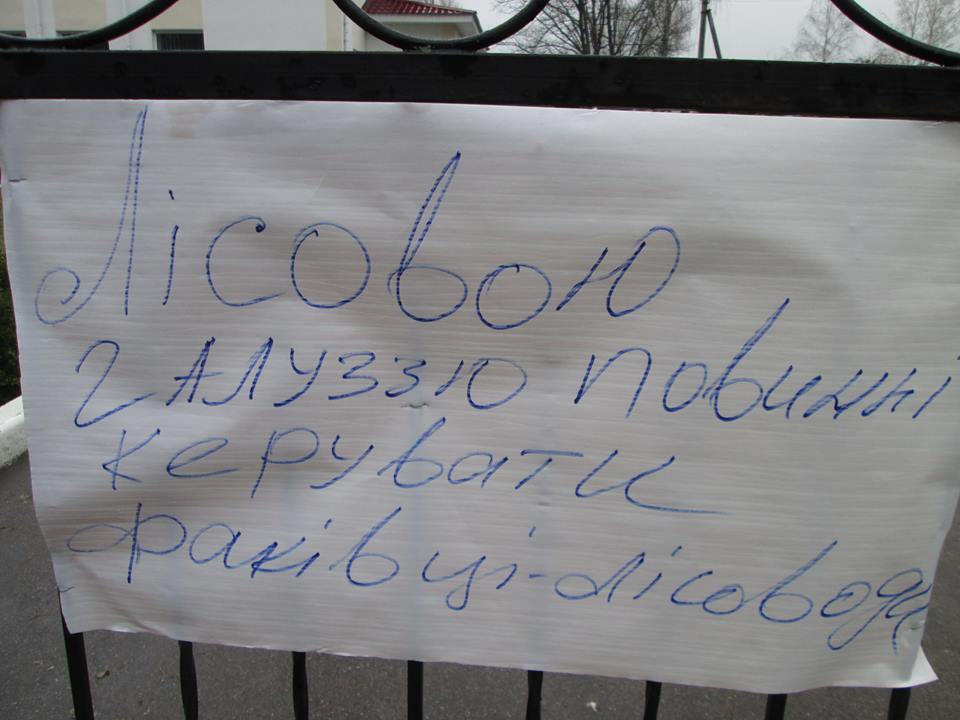 Лісовою
галуззю повинні
керувати
факівці-лісоводи